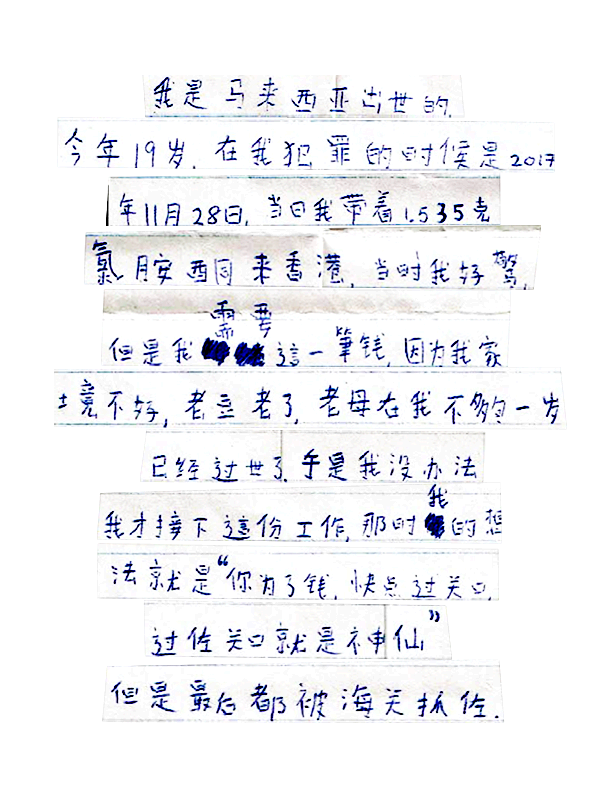 我是马来西亚出世的.
今年19岁. 在我犯罪的时侯是2017
年11月28日, 当日我带着1.535克
氯胺酮来香港, 当时我好驚,
需要
但是我 這一筆钱, 因为我家
境不好, 老豆老了, 老母在我不够一岁
已经过世了. 于是我没办法
我
我才接下這份工作, 那时 的想
法就是“你为了钱, 快点过关口,
过佐关口就是神仙”
但是最后都被海关抓佐.